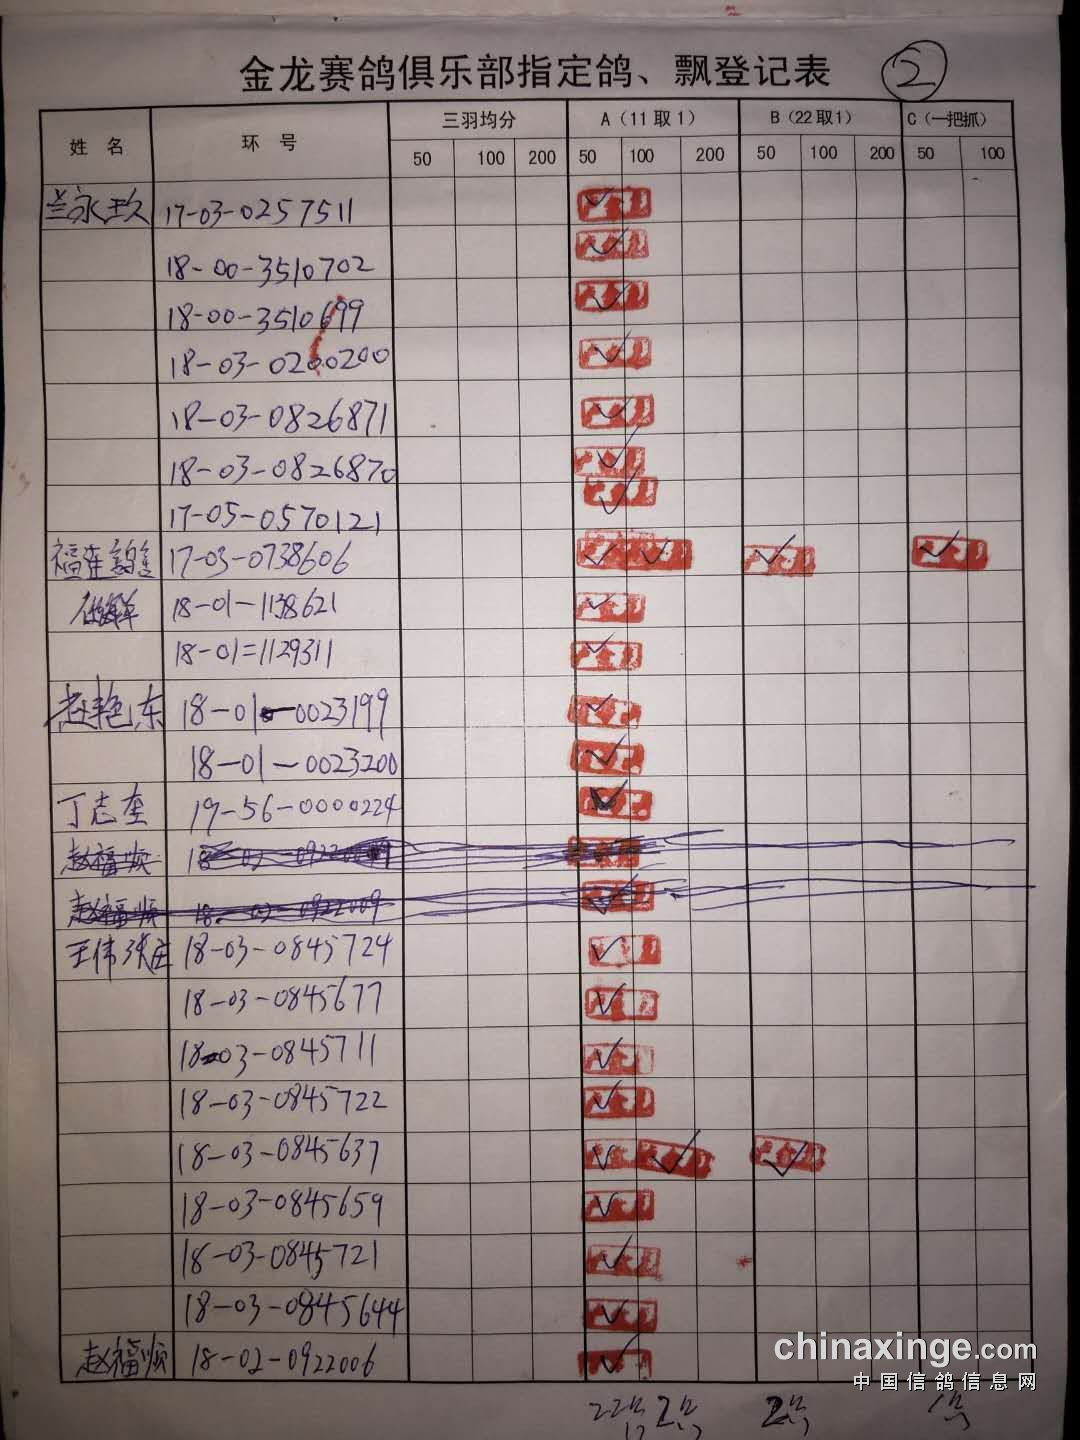 金龙赛鸽俱乐部指定鸽、飘登记表 ②
姓 名 环 号 三羽均分 A（11取1） B（22取1） C（一把抓）
50 100 200 50 100 200 50 100 200 50 100
兰永玖 17-03-0257511
18-00-3510702
18-00-3510699
18-03-0200200
18-03-0826871
18-03-0826870
17-05-0570121
17-03-0738606
18-01-1138621
18-01=1129311
赵艳东 18-01-0023199
18-01-0023200
丁志奎 19-56-0000224
赵福顺
赵福顺 18-02-0922009
王伟 18-03-0845724
18-03-0845677
18-03-0845711
18-03-0845722
18-03-0845637
18-03-0845659
18-03-0845721
18-03-0845644
赵福顺 18-02-0922006
22 2 2 1
chinaxinge.com
中国信鸽信息网